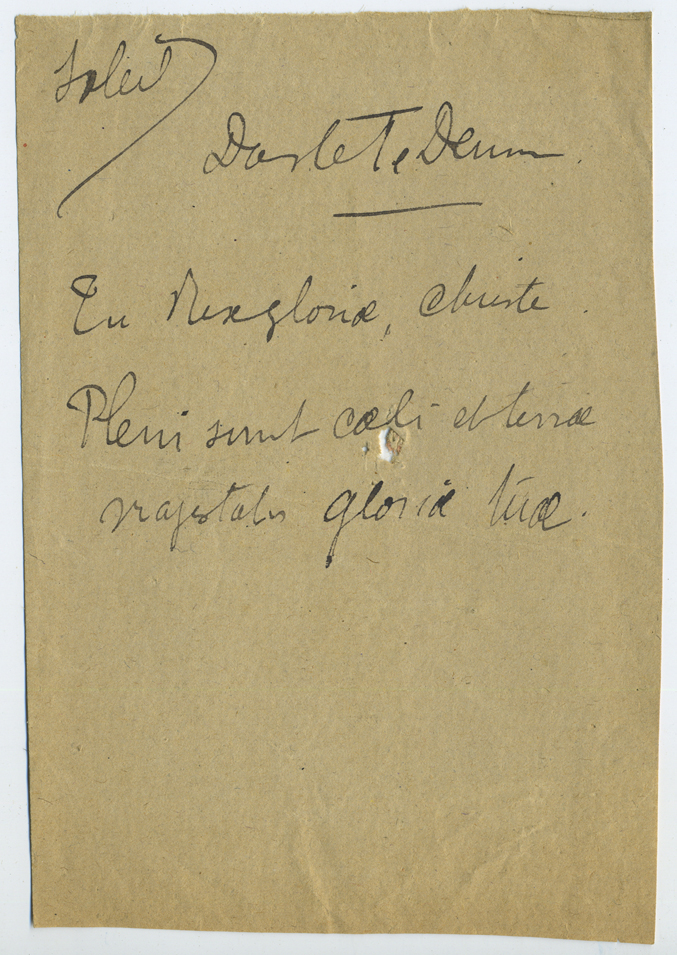 Soleil
Dans le Te Deum.
Tu Rex gloriæ, Christe.
Pleni sunt cæli et terræ
majestatis gloriæ tuæ.